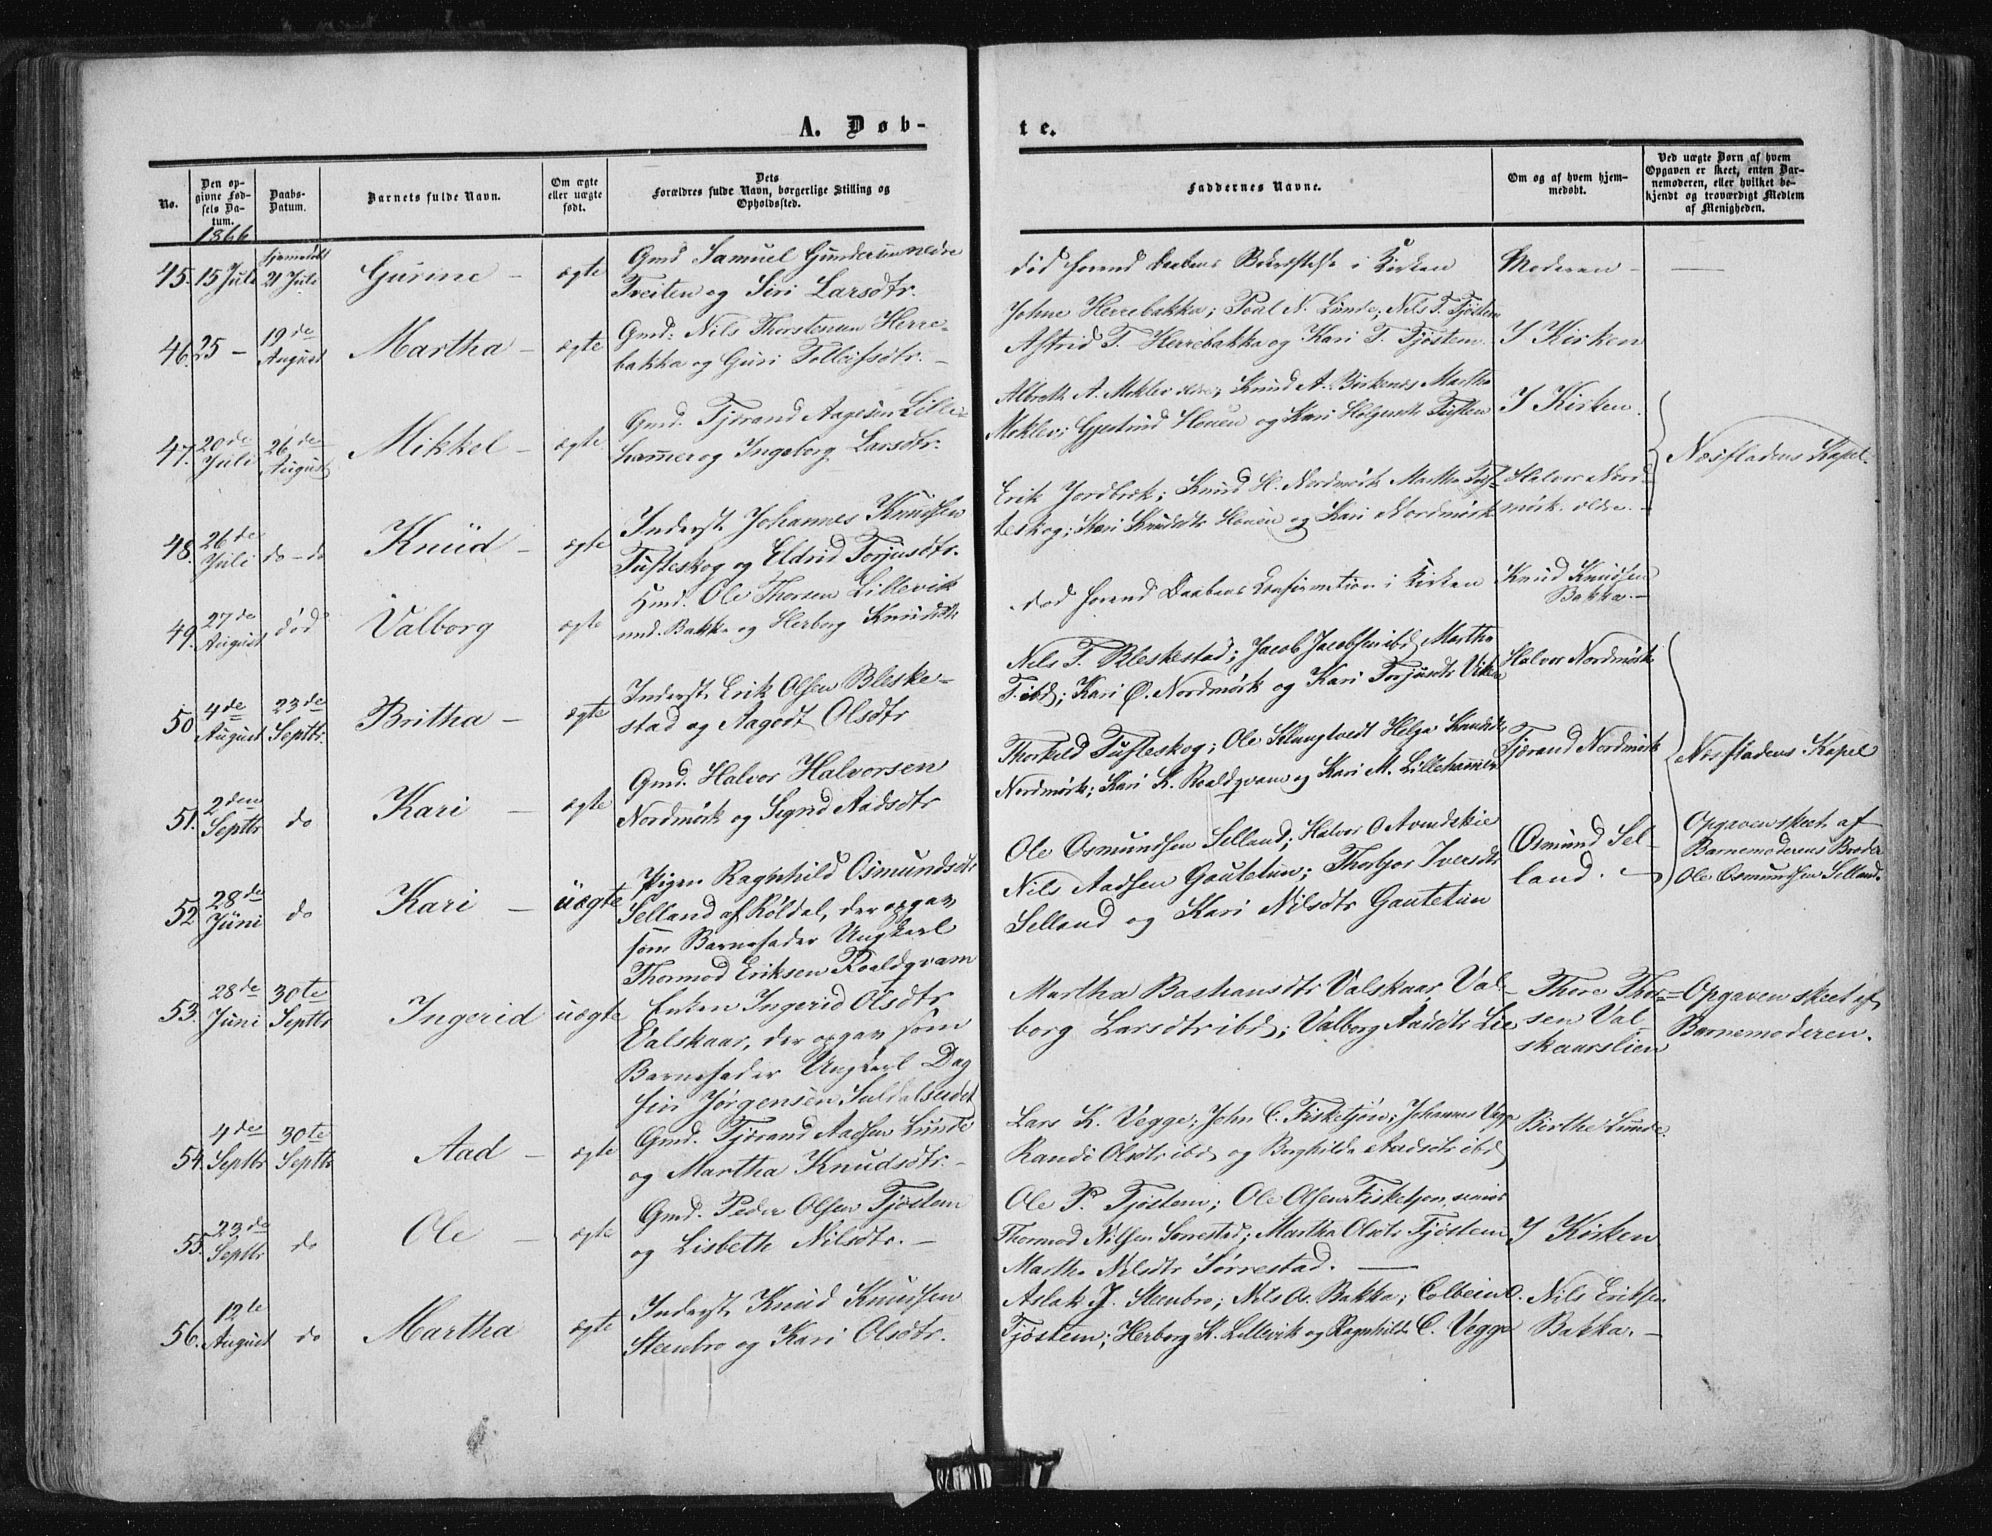 A. Døb-
te.
No.
Den op-
givne Fød-
sels Da-
tum.
1866
Daabs-
Datum.
Barnets fulde Navn.
Om ægte
eller uægte
født.
Dets
Forældres fulde Navn, borgerlige Stilling og
Opholdssted.
Faddernes Navne.
Om og af hvem hjem-
medøbt.
Ved uægte Børn af hvem
Opgaven er skeet, enten Bar-
nemoderen, eller hvilket be-
kjendt og troværdigt Medlem
af Menigheden.
45. 15 Juli
hjemdøbt
21 Juli
Gurine - ægte
Gmd Samuel Gundersen nedre
Tveiten og Siri Larsdtr.
død forend Daabens Bekræftelse i Kirken
Moderen -
46. 25 -
19de
August
Martha - ægte
Gmd: Nils Thorstensen Herre-
bakka og Guri Tolleifsdtr. -
Johne Herrebakka; Poul N. Lunde; Nils T. Tjøstem
Astrid T. Herrebakka og Kari T. Tjøstem.
I Kirken
47. 20de
Juli
26de
August
Mikkel - ægte
Gmd. Tjerand Aagesen Lille-
hammer og Ingeborg Larsdtr.
Albreth A. Moklev ; Knud A. Birkenes Martha
Moklev; Gjertrud Houen og Kari Tuften
I Kirken.
Næsfladens Kapel.
48. 26de
Juli
do - do
Knud - ægte
Inderst Johannes Knudsen
Tufteskog og Eldrid Torjusdtr.
Erik Jordbrek; Knud H. Nordmørk Martha Tuf-
teskog; Kari Knudsdtr Houen og Kari Nordmørk
Halvor Nord-
mørk. ældre. -
49. 27de
August
død
Valborg ægte
Hmd. Ole Thorsen Lillevik
und. Bakka og Herborg Knudsdtr
død forend Daabens Confirmation i Kirken
Knud Knudsen
Bakka. -
50 4de
August
23de
Septbr.
Britha - ægte
Inderst Erik Olsen Bleske-
stad og Aagodt Olsdtr
Nils T. Bleskestad; Jacob Jacobsen ibd, Martha
T. ibd; Kari Ø. Nordmørk og Kari Torjusdtr Viken
Halvor Nordmørk
Næsfladens Kapel
51. 2den
Septbr
do
Kari - ægte
Gmd. Halvor Halvorsen
Nordmørk og Signe Aadsdtr
Thorkild Tufteskog; Ole Helga Knudsdtr
Nordmørk; Kari K. Roaldqvam og Kari M. Lillehammer
Tjerand Nordmørk
52. 28de
Juni
do
Kari - uægte
Pigen Ragnhild Osmundsdtr
Selland af Røldal, der opgav
som Barnefader Ungkarl
Thormod Eriksen Roaldqvam
Ole Osmundsen Selland; Halvor O Avendskie
Nils Aadsen Gautetun; Thorbjør Iversdtr
Selland og Kari Nilsdtr Gautetun
Osmund Sel-
land. -
Opgaven skeet af
Barnemoderens Broder
Ole Osmundsen Selland.
53. 28de
Juni
30te
Septbr
Ingerid uægte
Enken Ingerid Olsdtr
Valskaar, der opgav som
Barnefader Ungkarl Dag
fin Jørgensen Suldalseidet
Martha Bashansdtr Valskaar, Val-
borg Larsdtr ibd; Valborg Aadsdtr Lie
Thore Thor-
sen Val-
skaarslien
Opgaven skeet af
Barnemoderen.
54. 4de
Septbr
30te
Septbr
Aad - ægte
Gmd. Tjerand Aadsen Lunde
og Martha Knudsdtr. -
Lars K. Vegge; John C. Fisketjøn; Johannes Vegge
Randi Olsdtr ibd og Borghilde Aadsdtr ibd
Birthe Lunde.
55. 23de
Septbr
do
Ole - ægte
Gmd. Peder Olsen Tjøstem
og Lisbeth Nilsdtr. -
Ole P. Tjøstem; Ole Olsen Fisketjøn senior
Thormod Nilsen Sørrestad; Martha Olsdtr Tjøstem
Martha Nilsdtr Sørrestad. -
I Kirken
56. 12te
August
do
Martha ægte
Inderst Knud Knudsen
Steenbro og Kari Olsdtr.
Aslak J. Steenbro; Nils O. Bakka; Colbein O.
Tjøstem; Herborg K. Lillevik og Ragnhild C. Vegge
Nils Eriksen
Bakka. -